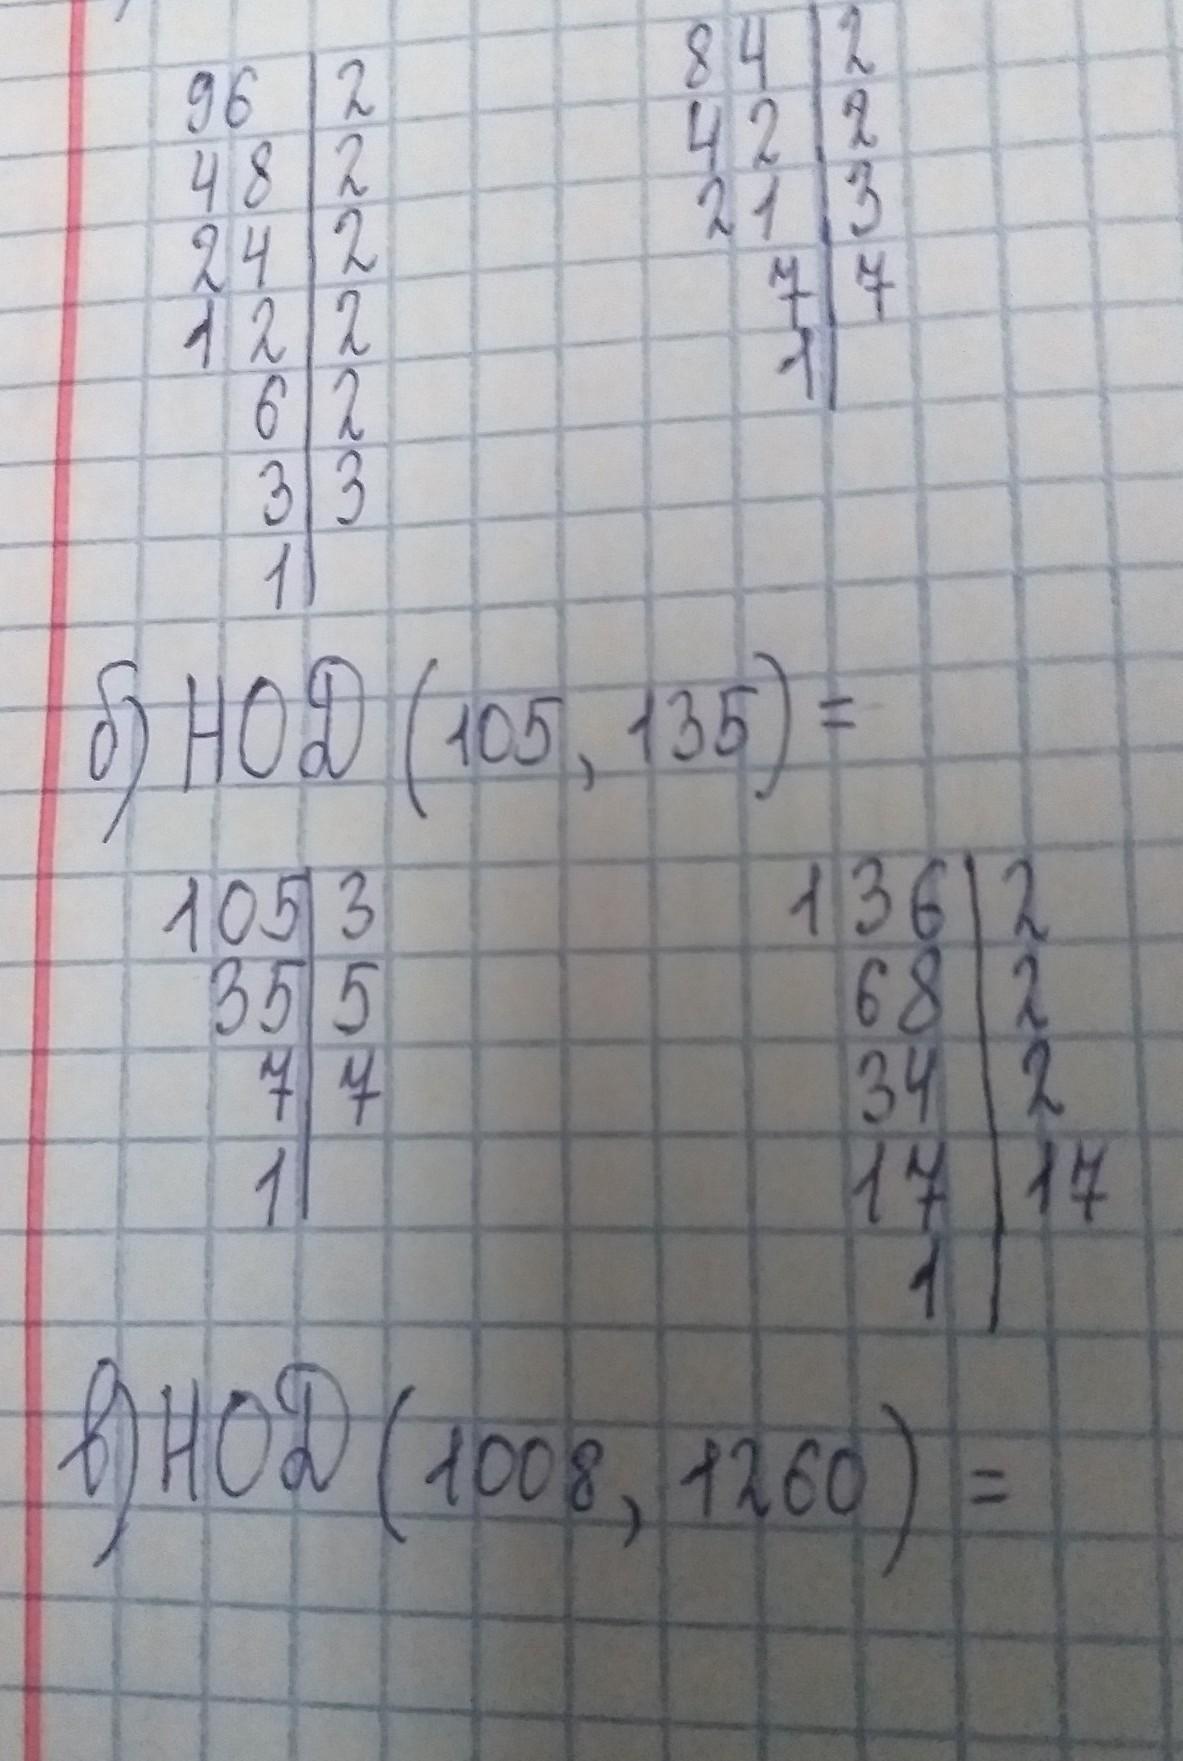 96 | 2
48 | 2
24 | 2
12 | 2
6 | 2
3 | 3
1 |
84 | 2
42 | 2
21 | 3
7 | 7
1 |
б) НОД (105, 135) =
105 | 3
35 | 5
7 | 7
1 |
136 | 2
68 | 2
34 | 2
17 | 17
1 |
в) НОД (1008, 1260) =